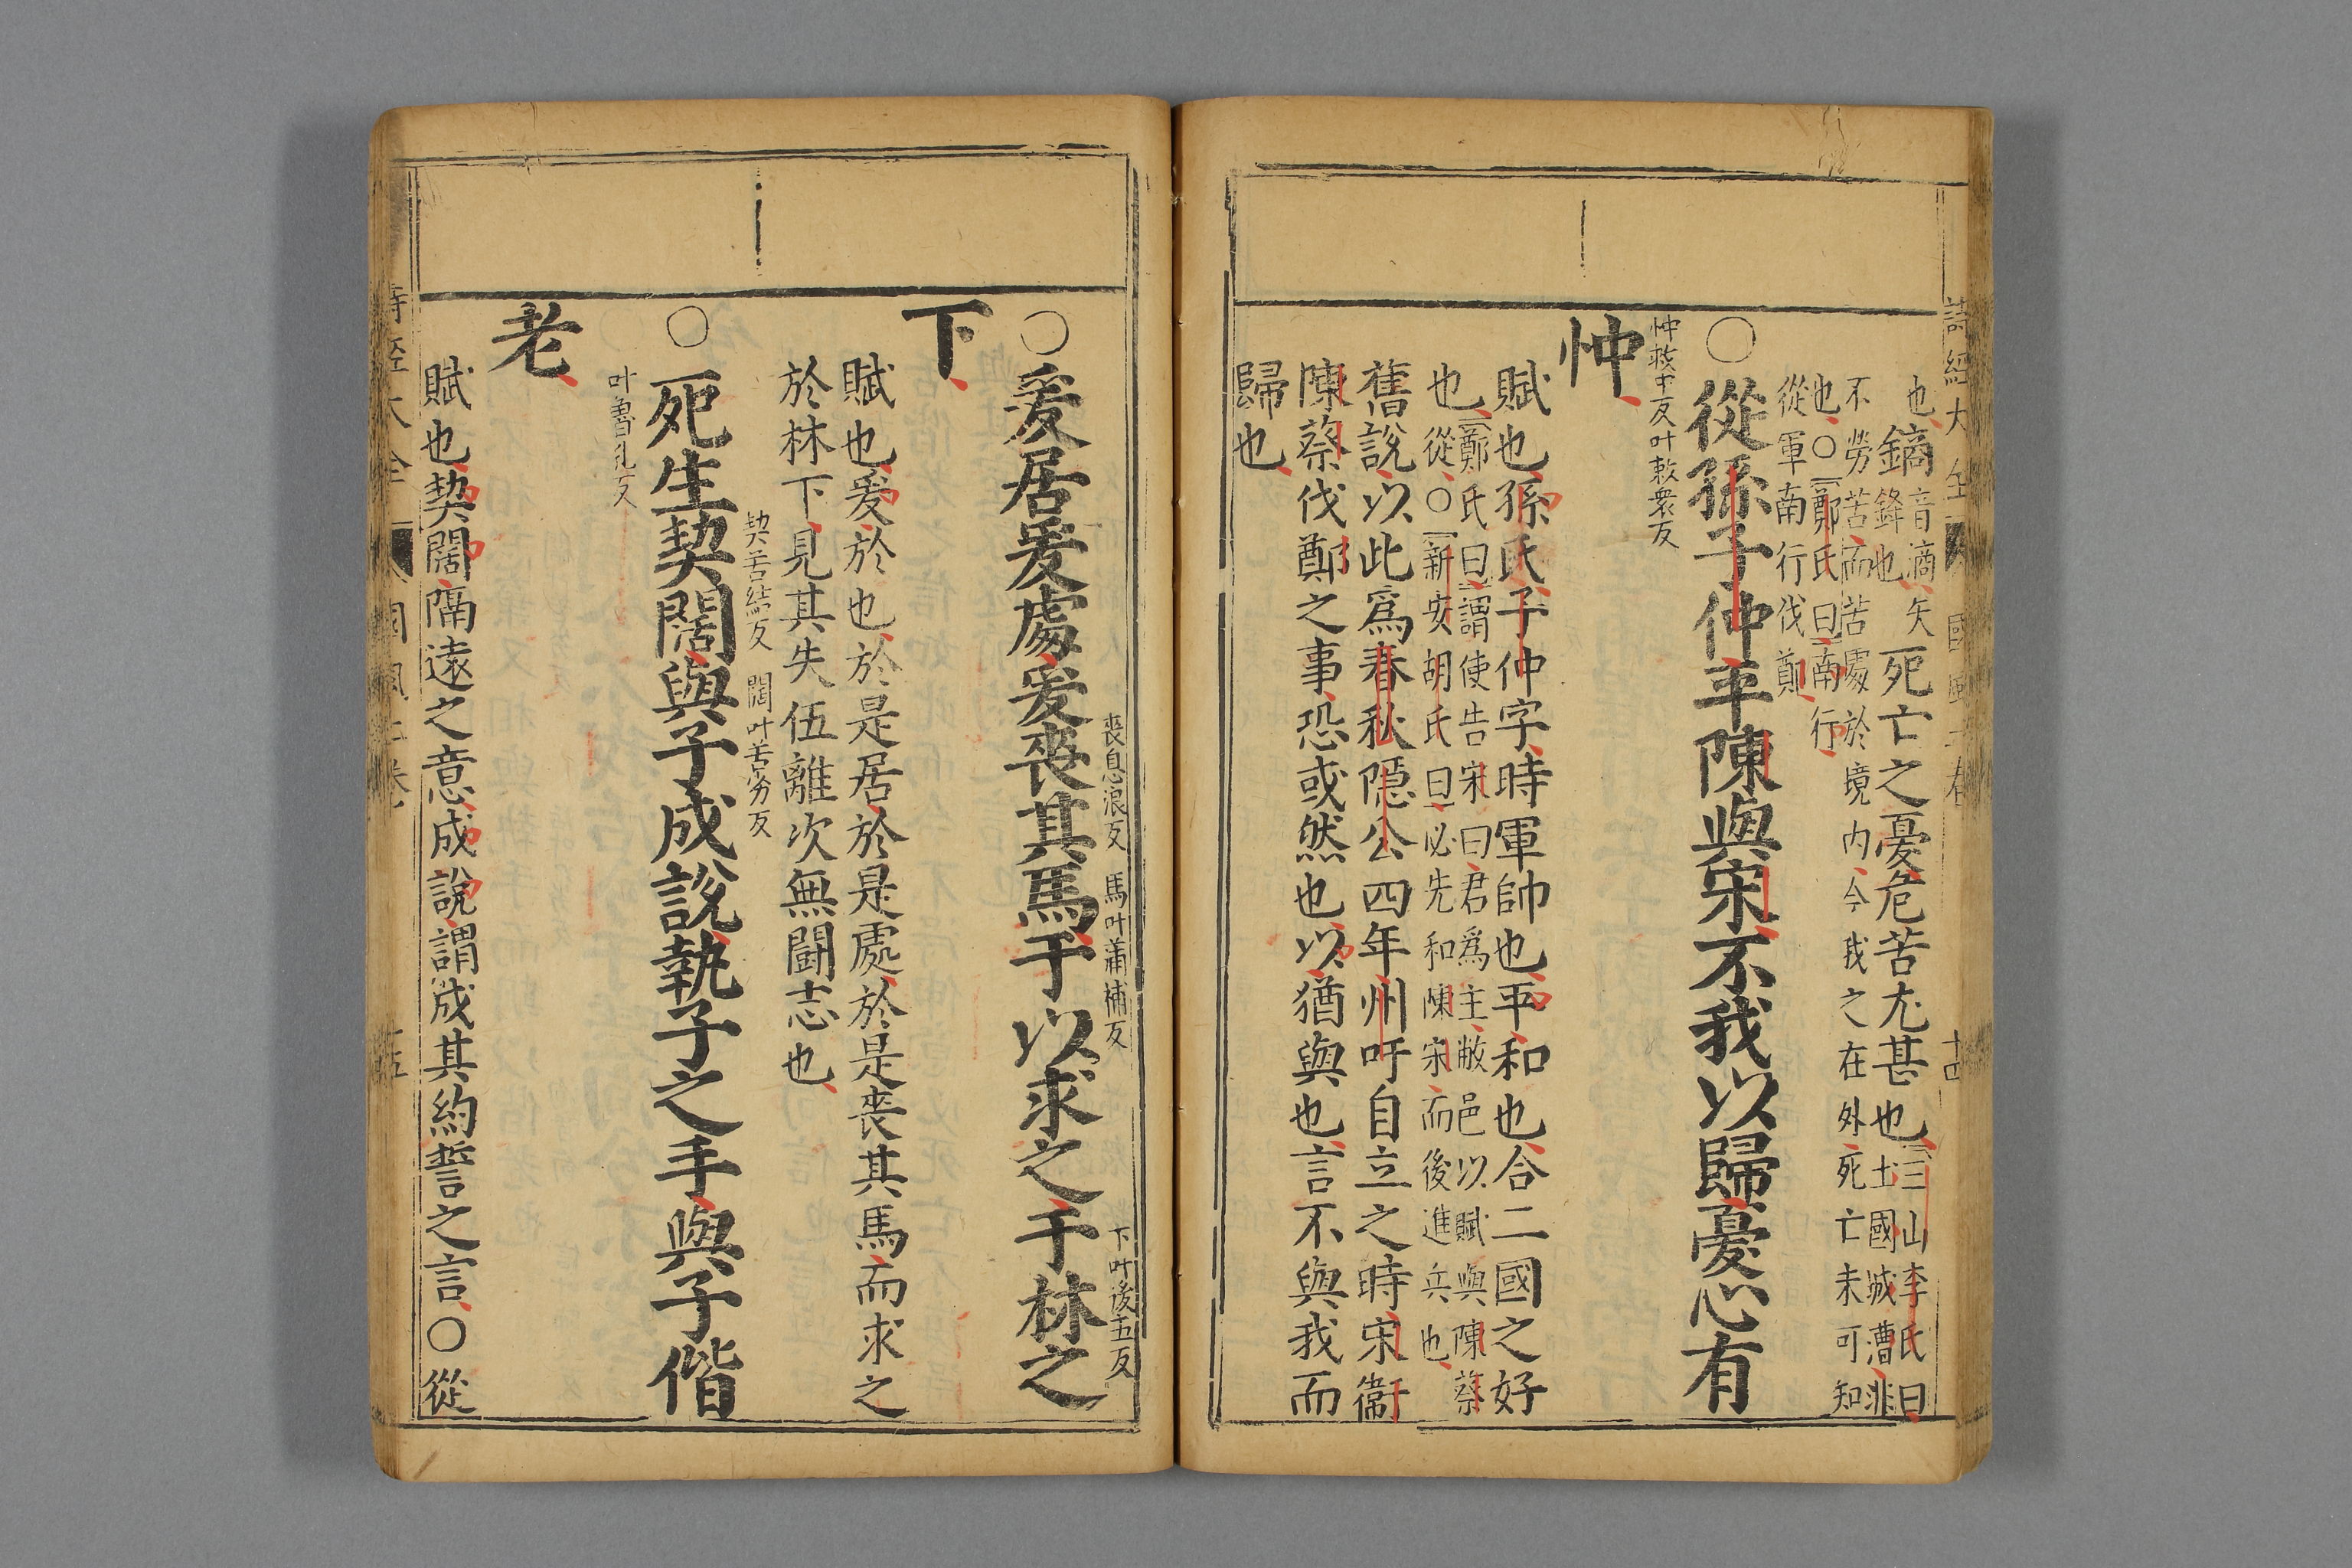 詩經大全 國風二卷 十四
也鏑音滴矢鋒也死亡之憂危苦尤甚也三山李氏曰土國城漕非
不勞苦而苦處於境内今我之在外死亡未可知
也○鄭氏曰南行
從軍南行伐鄭
○從孫子仲平陳與宋不我以歸憂心有
忡敕中反叶敕衆反
忡
賦也孫氏子仲字時軍帥也平和也合二國之好
也鄭氏曰謂使告宋曰君爲主敝邑以賦與陳蔡
從○新安胡氏曰必先和陳宋而後進兵也
舊說以此爲春秋隱公四年州吁自立之時宋衞
陳蔡伐鄭之事恐或然也以猶與也言不與我而
歸也
喪息浪反 馬叶滿補反 下叶後五反
○爰居爰處爰喪其馬于以求之于林之
下
賦也爰於也於是居於是處於是喪其馬而求之
於林下見其失伍離次無鬬志也
契苦結反 闊叶苦劣反
○死生契闊與子成說執子之手與子偕
叶魯吼反
老
賦也契闊隔遠之意成說謂成其約誓之言○從
詩經大全 國風二卷 十五